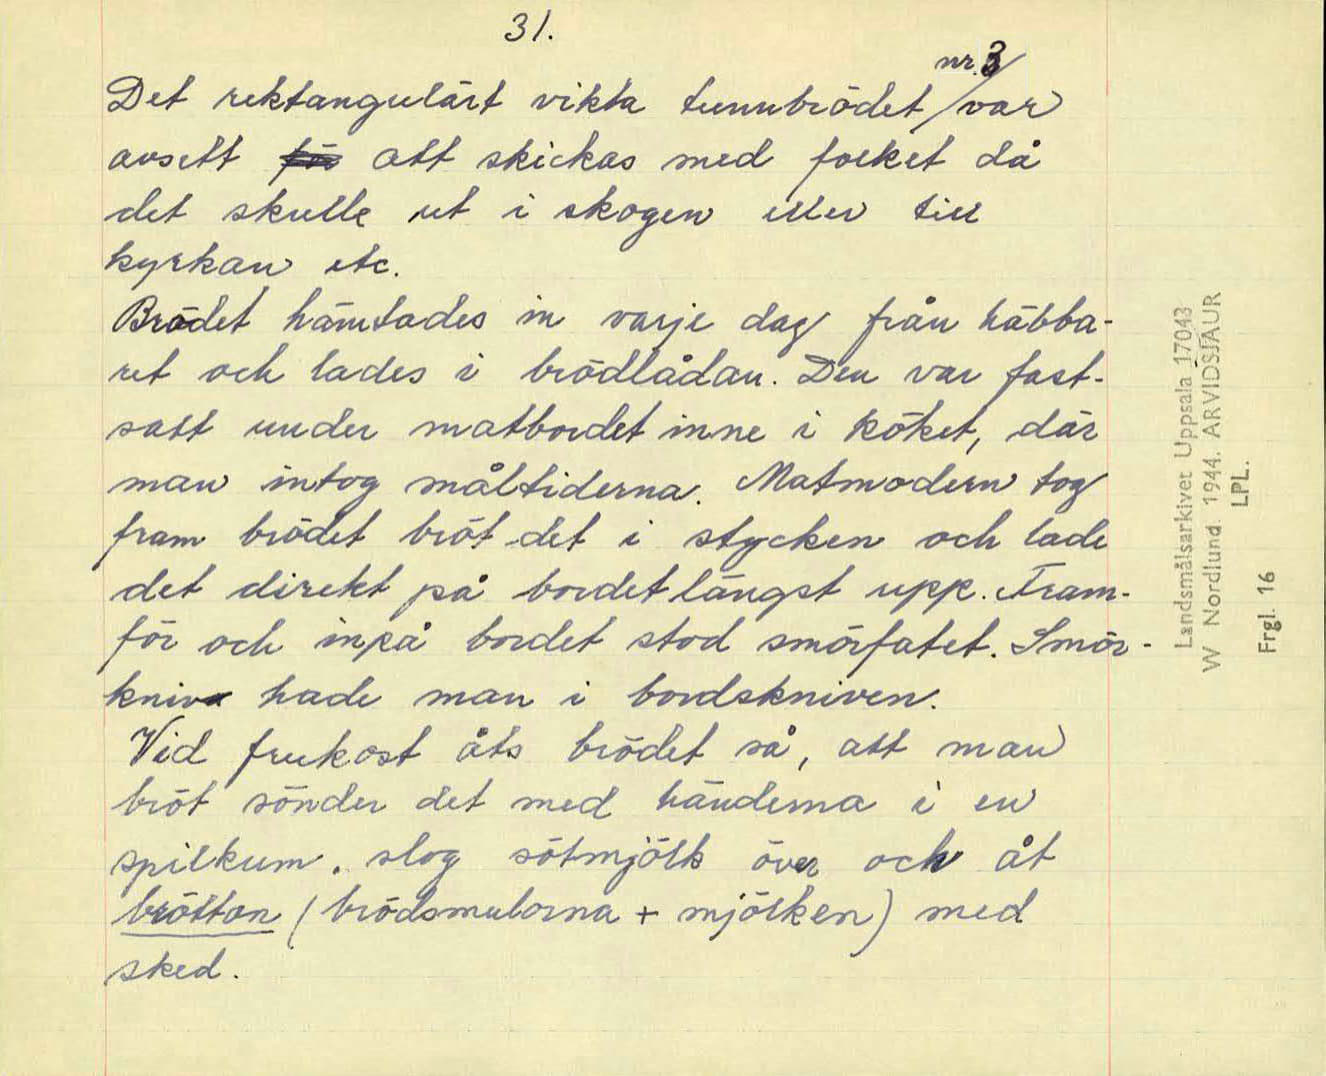 31.
nr. 3
Det rektangulärt vikta tunnbrödet var
avsett att skickas med folket då
det skulle ut i skogen eller till
kyrkan etc.
Brödet hämtades in varje dag från häbba-
ret och lades i brödlådan. Den var fast-
satt under matbordet inne i köket, där
man intog måltiderna. Matmodern tog
fram brödet bröt det i stycken och lade
det direkt på bordet längst upp. Fram-
för och inpå bordet stod smörfatet. Smör-
kniv hade man i bordskniven.
Vid frukost åts brödet så, att man
bröt sönder det med händerna i en
spilkum, slog sötmjölk över och åt
bröttan (brödsmulorna + mjölken) med
sked.
Landsmålsarkivet Uppsala 17043
W Nordlund. 1944. ARVIDSJAUR
LPL.
Frgl. 16